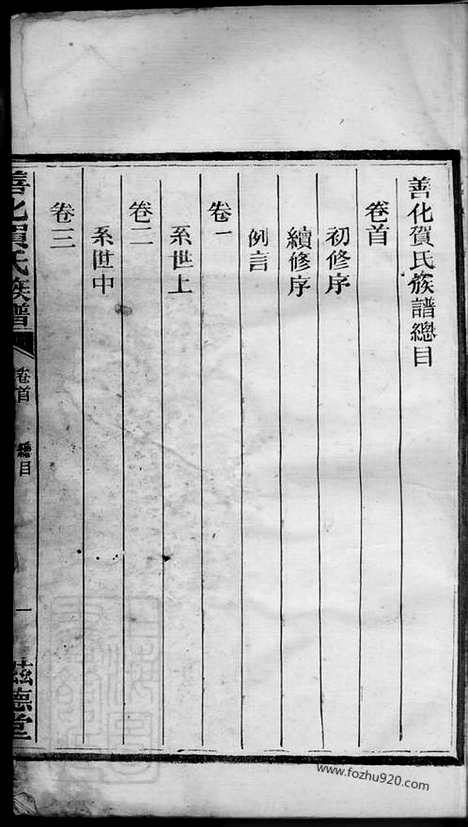 善化賀氏族譜總目
卷首
初修序
續修序
例言
卷一
系世上
卷二
系世中
卷三
善化賀氏族譜
卷首
總目
一
茲德堂
www.fozhu920.com